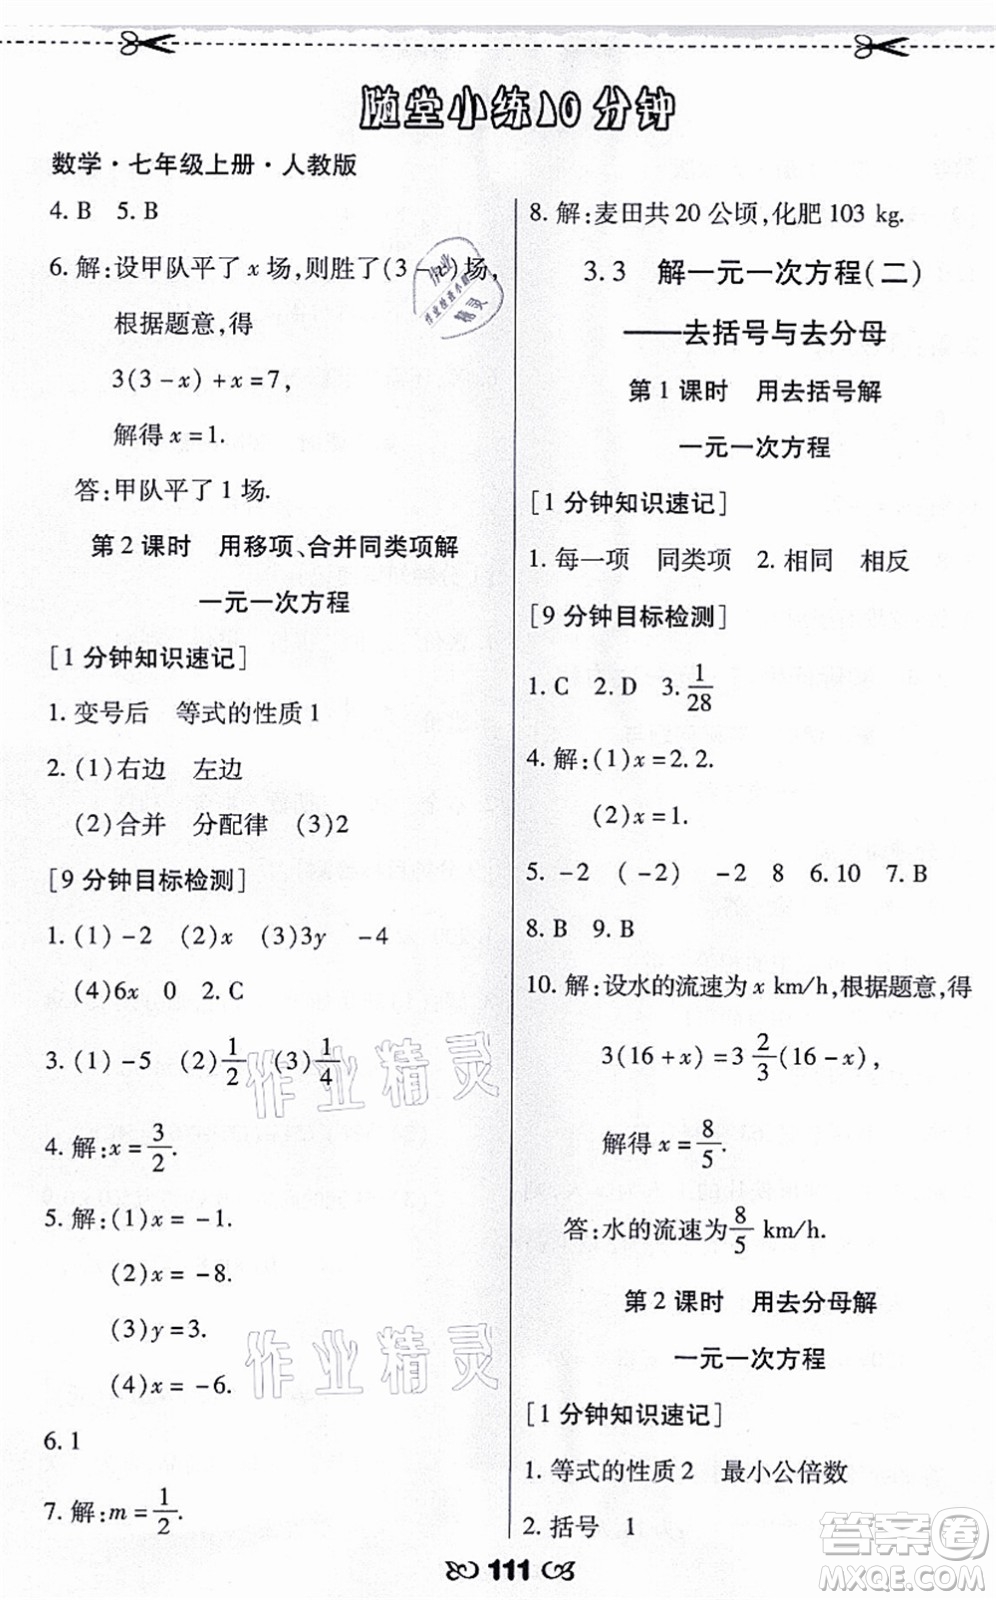 随堂小练10分钟
数学·七年级上册·人教版
4. B 5. B
6. 解:设甲队平了 x 场,则胜了(3-x)场,
根据题意,得
3(3-x)+x=7,
解得 x=1.
答:甲队平了 1 场.
第 2 课时 用移项、合并同类项解
一元一次方程
[1 分钟知识速记]
1. 变号后 等式的性质 1
2. (1)右边 左边
(2)合并 分配律 (3)2
[9 分钟目标检测]
1. (1) -2 (2)x (3)3y -4
(4)6x 0 2. C
3. (1) -5 (2) 1/2 (3) 1/4
4. 解:x = 3/2.
5. 解:(1)x = -1.
(2)x = -8.
(3)y = 3.
(4)x = -6.
6. 1
7. 解:m = 1/2.
8. 解:麦田共 20 公顷,化肥 103 kg.
3.3 解一元一次方程(二)
——去括号与去分母
第 1 课时 用去括号解
一元一次方程
[1 分钟知识速记]
1. 每一项 同类项 2. 相同 相反
[9 分钟目标检测]
1. C 2. D 3. 1/28
4. 解:(1)x = 2.2.
(2)x = 1.
5. -2 (-2) -2 8 6. 10 7. B
8. B 9. B
10. 解:设水的流速为 x km/h,根据题意,得
3(16+x) = 3 2/3 (16-x),
解得 x = 8/5.
答:水的流速为 8/5 km/h.
第 2 课时 用去分母解
一元一次方程
[1 分钟知识速记]
1. 等式的性质 2 最小公倍数
2. 括号 1
111
作业精灵
作业精灵
答案圈
MXQE.COM